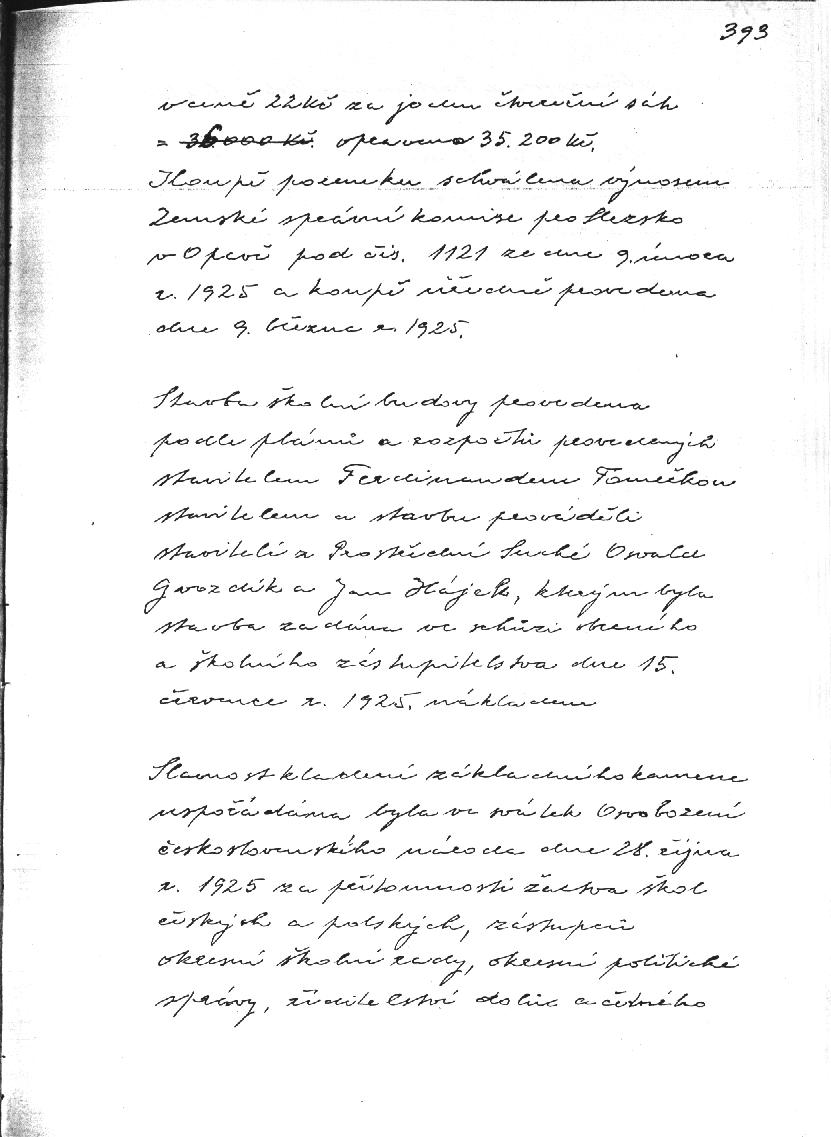 393
v ceně 22 Kč za jeden čtvereční sáh
= 36000 Kč. opraveno 35.200 Kč.
Koupě pozemku schválena výnosem
Zemské správní komise pro Slezsko
v Opavě pod čís. 1121 ze dne 9. února
r. 1925 a koupě úředně provedena
dne 9. března r. 1925.
Stavba školní budovy provedena
podle plánů a rozpočtů provedených
stavitelem Ferdinandem Tomečkou
stavitelem a stavbu prováděli
stavitelé z Prostřední Suché Osvald
Gvozdík a Jan Hájek, kterým byla
stavba zadána ve schůzi obecního
a školního zástupitelstva dne 15.
července r. 1925. nákladem
Slavnost kladení základního kamene
uspořádána byla ve svátek Osvobození
československého národa dne 28. října
r. 1925 za přítomnosti žactva škol
českých a polských, zástupců
okresní školní rady, okresní politické
správy, ředitelství dolů a četného